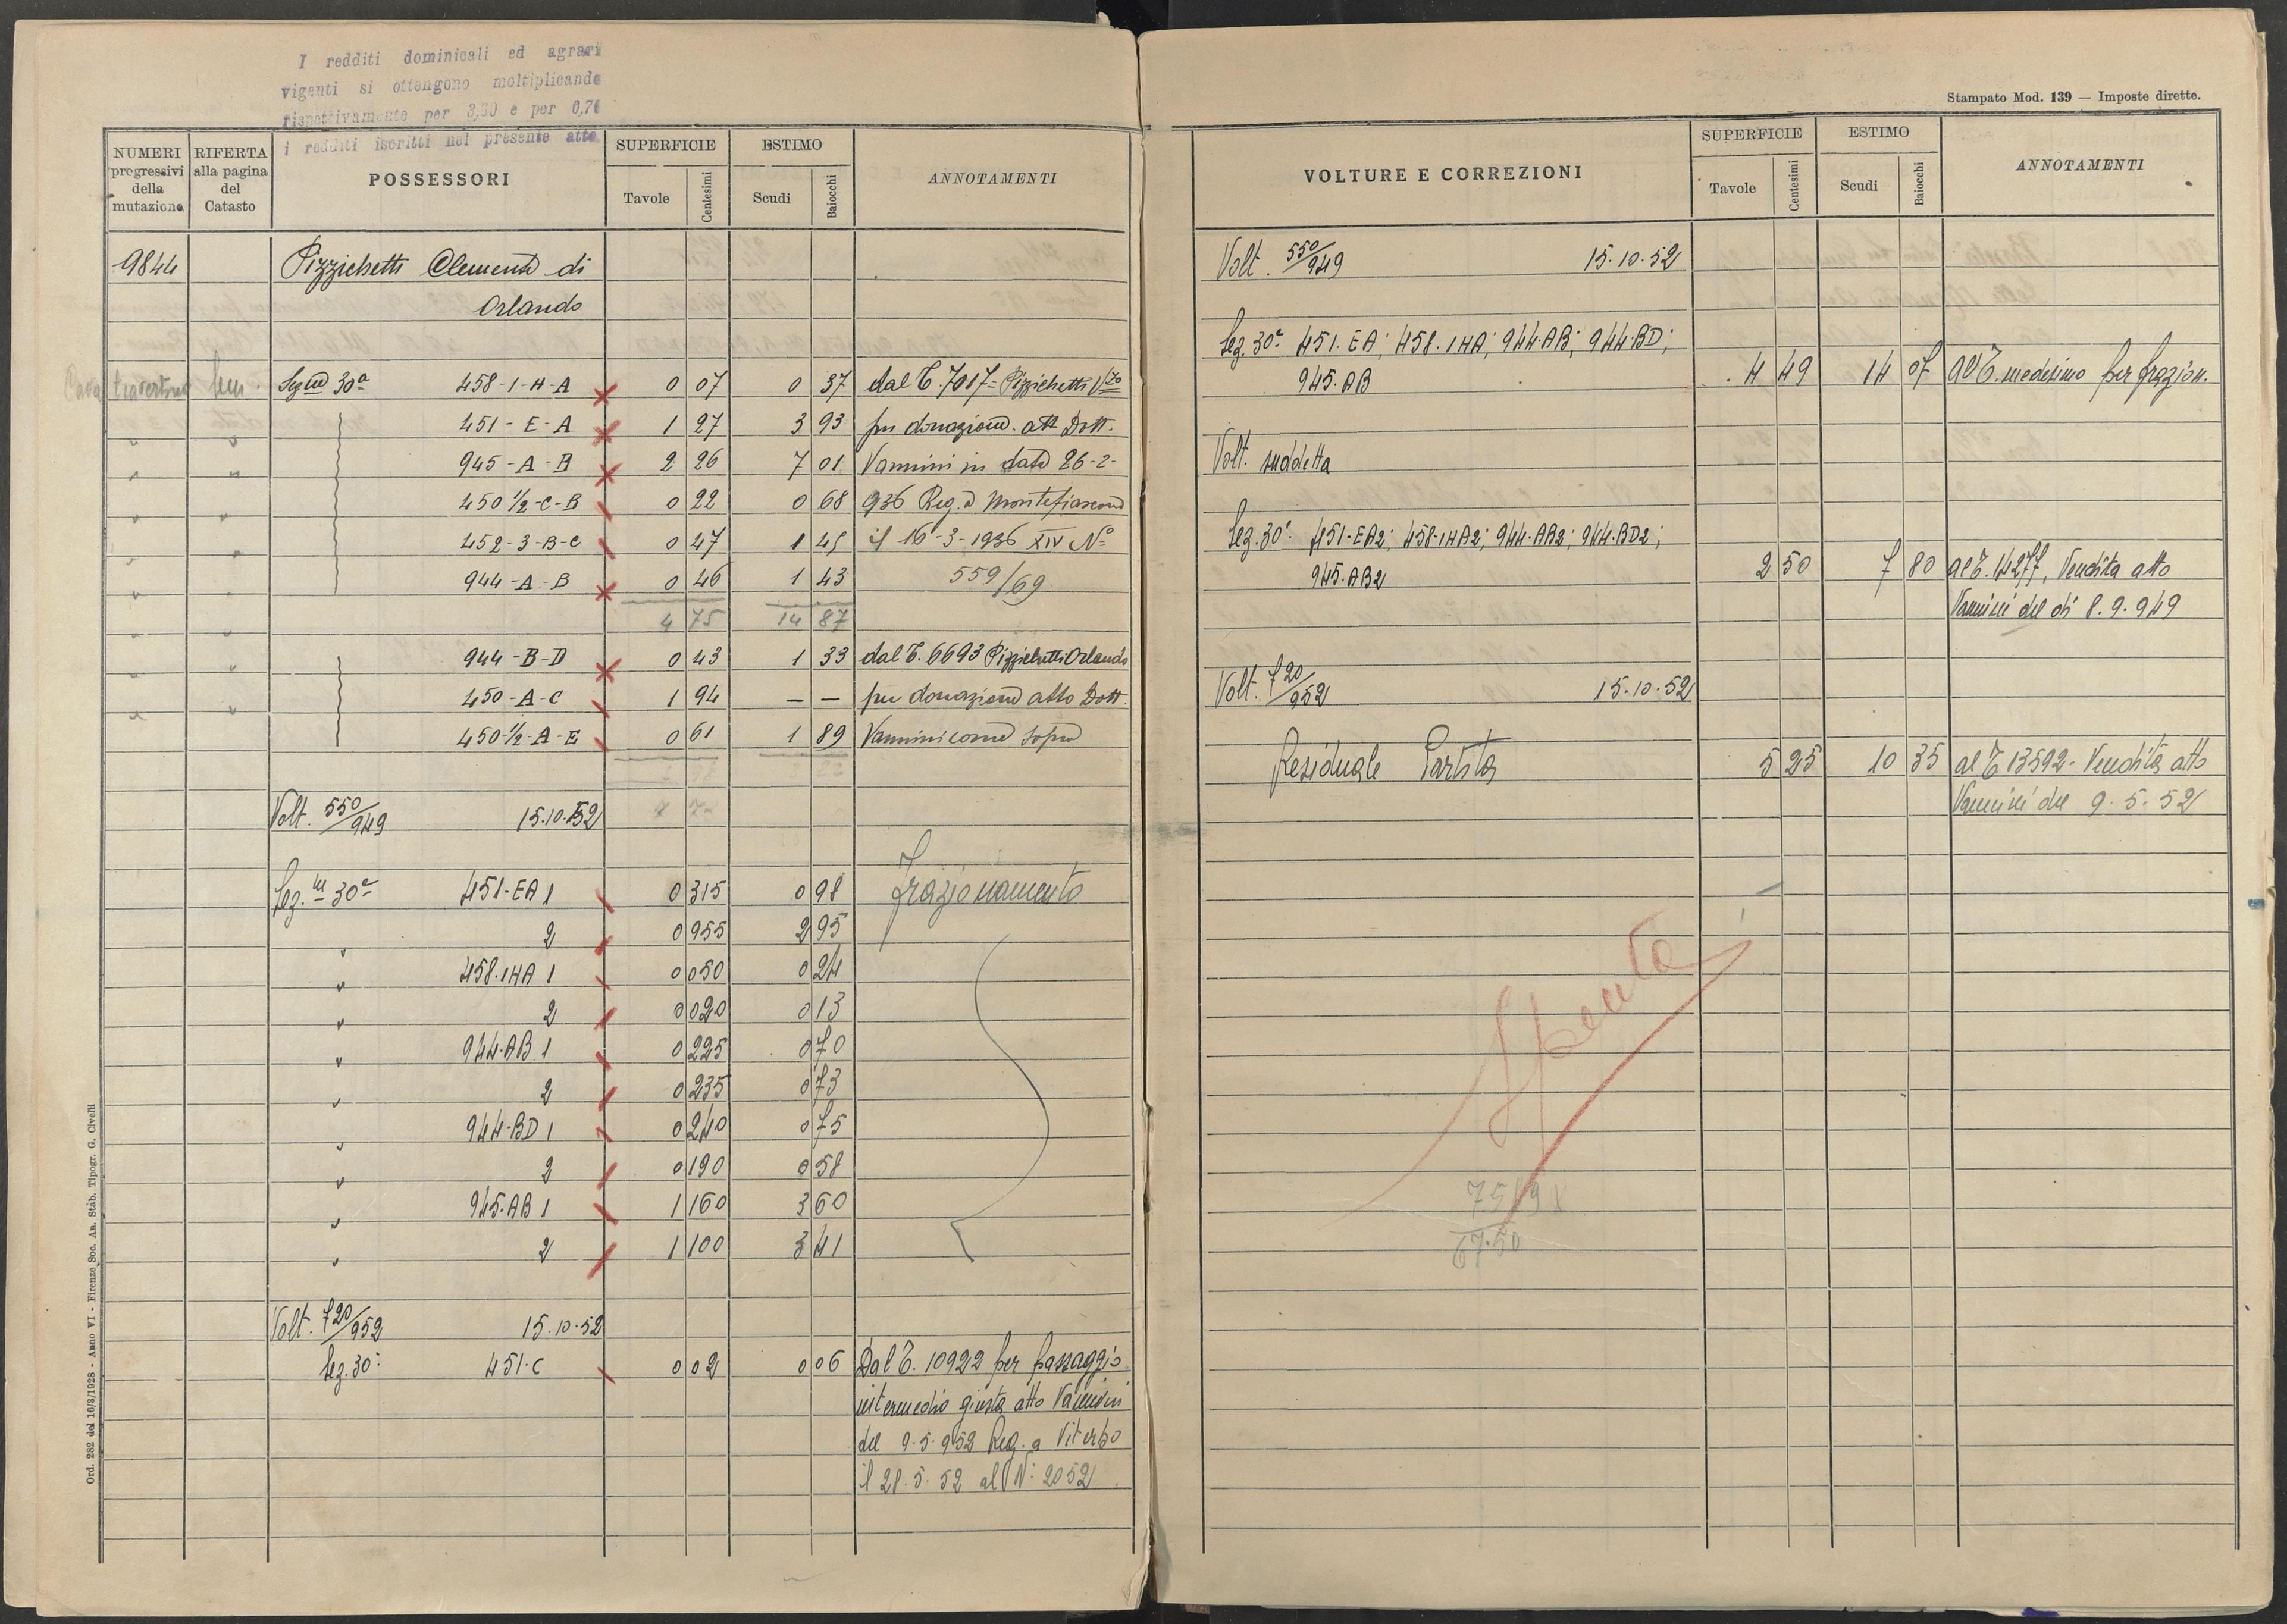 I redditi dominicali ed agrari
vigenti si ottengono moltiplicando
rispettivamente per 3,30 e per 0,70
i redditi iscritti nel presente atto
NUMERI progressivi della mutazione
RIFERTA alla pagina del Catasto
POSSESSORI
SUPERFICIE
Tavole Centesimi
ESTIMO
Scudi Baiocchi
ANNOTAMENTI
9844 Pizzichetti Clemente di
Orlando
30ª 458-1-H-A 0 07 0 37 dal T. 7017 = Pizzichetti
451-E-A 1 27 3 93 per donazione att Dott.
945-A-B 2 26 7 01 Vannini in data 26-2-
450 1/2-C-B 0 22 0 68 936 Reg. a Montefiascone
452-3-B-C 0 47 1 45 il 16-3-1936 XIV Nº
944-A-B 0 46 1 43 559/69
4 75 14 87
944-B-D 0 43 1 33 dal T. 6693 Pizzichetti Orlando
450-A-C 1 94 — — per donazione atto Dott.
450-1/2-A-E 0 61 1 89 Vannini come sopra
Volt. 550/949 15.10.52
Sez. 30ª 451-EA 1 0 315 0 98 Frazionamento
" 2 0 955 2 95
" 458.1HA 1 0 050 0 24
" 2 0 020 0 13
" 944.AB 1 0 225 0 70
" 2 0 235 0 73
" 944-BD 1 0 240 0 75
" 2 0 190 0 58
" 945.AB 1 1 160 3 60
" 2 1 100 3 41
Volt. 720/952 15.10.52
Sez. 30ª 451.C 0 02 0 06 Dal T. 10922 per passaggio
intermedio giusta atto Vannini
del 9.5.952 Reg. a Viterbo
il 28.5.52 al N: 2052
Ord. 282 del 16/3/1928 - Anno VI - Firenze, Soc. An. Stab. Tipogr. G. Civelli
Stampato Mod. 139 — Imposte dirette.
VOLTURE E CORREZIONI
SUPERFICIE
Tavole Centesimi
ESTIMO
Scudi Baiocchi
ANNOTAMENTI
Volt. 550/949 15.10.52
Sez. 30ª 451.EA; 458.1HA; 944.AB; 944.BD;
945.AB 4 49 14 07 Al T. medesimo per frazion.
Volt. suddetta
Sez. 30ª 451-EA2; 458-1HA2; 944-AB2; 944.BD2;
945.AB2 2 50 7 80 al T. 14277, Vendita atto
Vannini del di 8.9.949
Volt. 720/952 15.10.52
Residuale Partita 5 25 10 35 al T 13592 - Vendita atto
Vannini del 9.5.52
Spenta
67.50